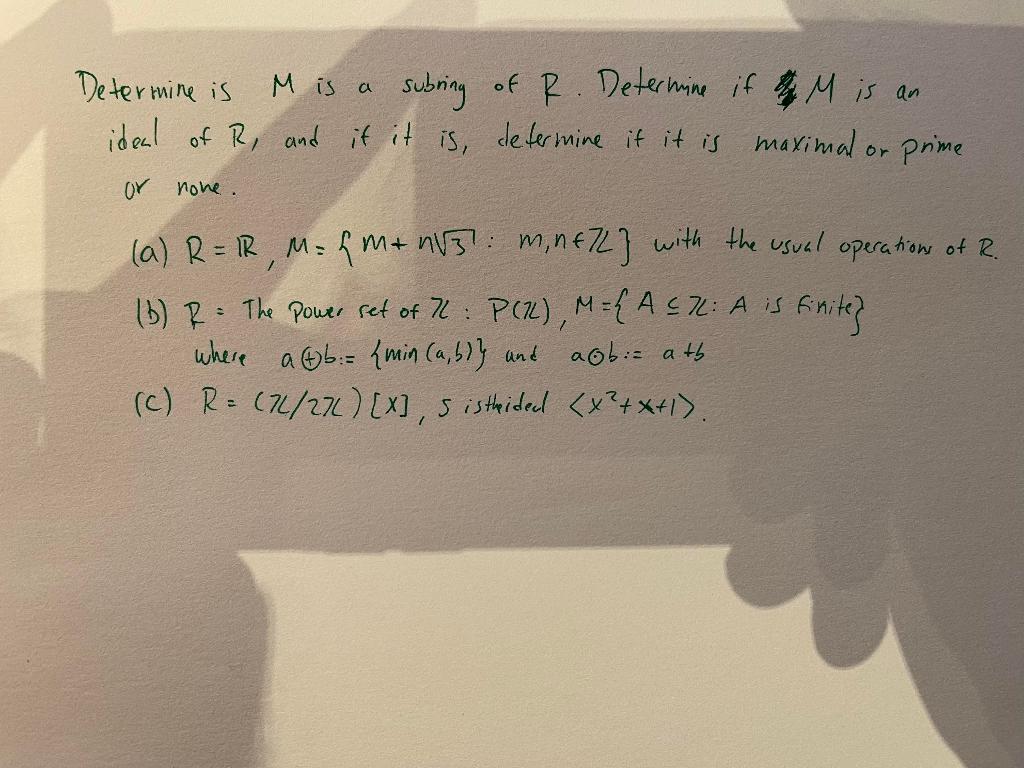 Determine is M is a subring of R. Determine if M is an
ideal of R, and if it is, determine if it is maximal or prime
or none.
(a) R = ℝ, M = { m + n√3 : m, n ∈ ℤ } with the usual operations of R.
(b) R = The Power set of ℤ : P(ℤ), M = { A ⊆ ℤ : A is finite}
where a ⊕ b := {min(a,b)} and a ⊙ b := a + b
(c) R = (ℤ/2ℤ)[X], S is the ideal <x²+x+1>.